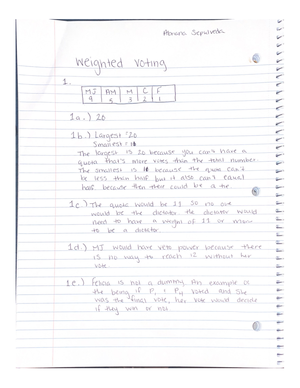 Weighted Voting
1.
MJ AM M C F
9 5 3 2 1
1a.) 20
1b.) Largest: 20
Smallest: 11
The largest is 20 because you can't have a
quota that's more votes than the total number.
The smallest is 11 because the quota can't
be less then half but it also can't equal
half, because then there could be a tie
1c.) The quota would be 11 so no one
would be the dictator the dictator would
need to have a weight of 11 or
to be a dictator
1d.) MJ would have veto power because there
is no way to reach 12 without her
vote
1e.) Felicia is not a dummy. An example of
the being if P, voted and she
was the final vote, her vote would decide
if they win or